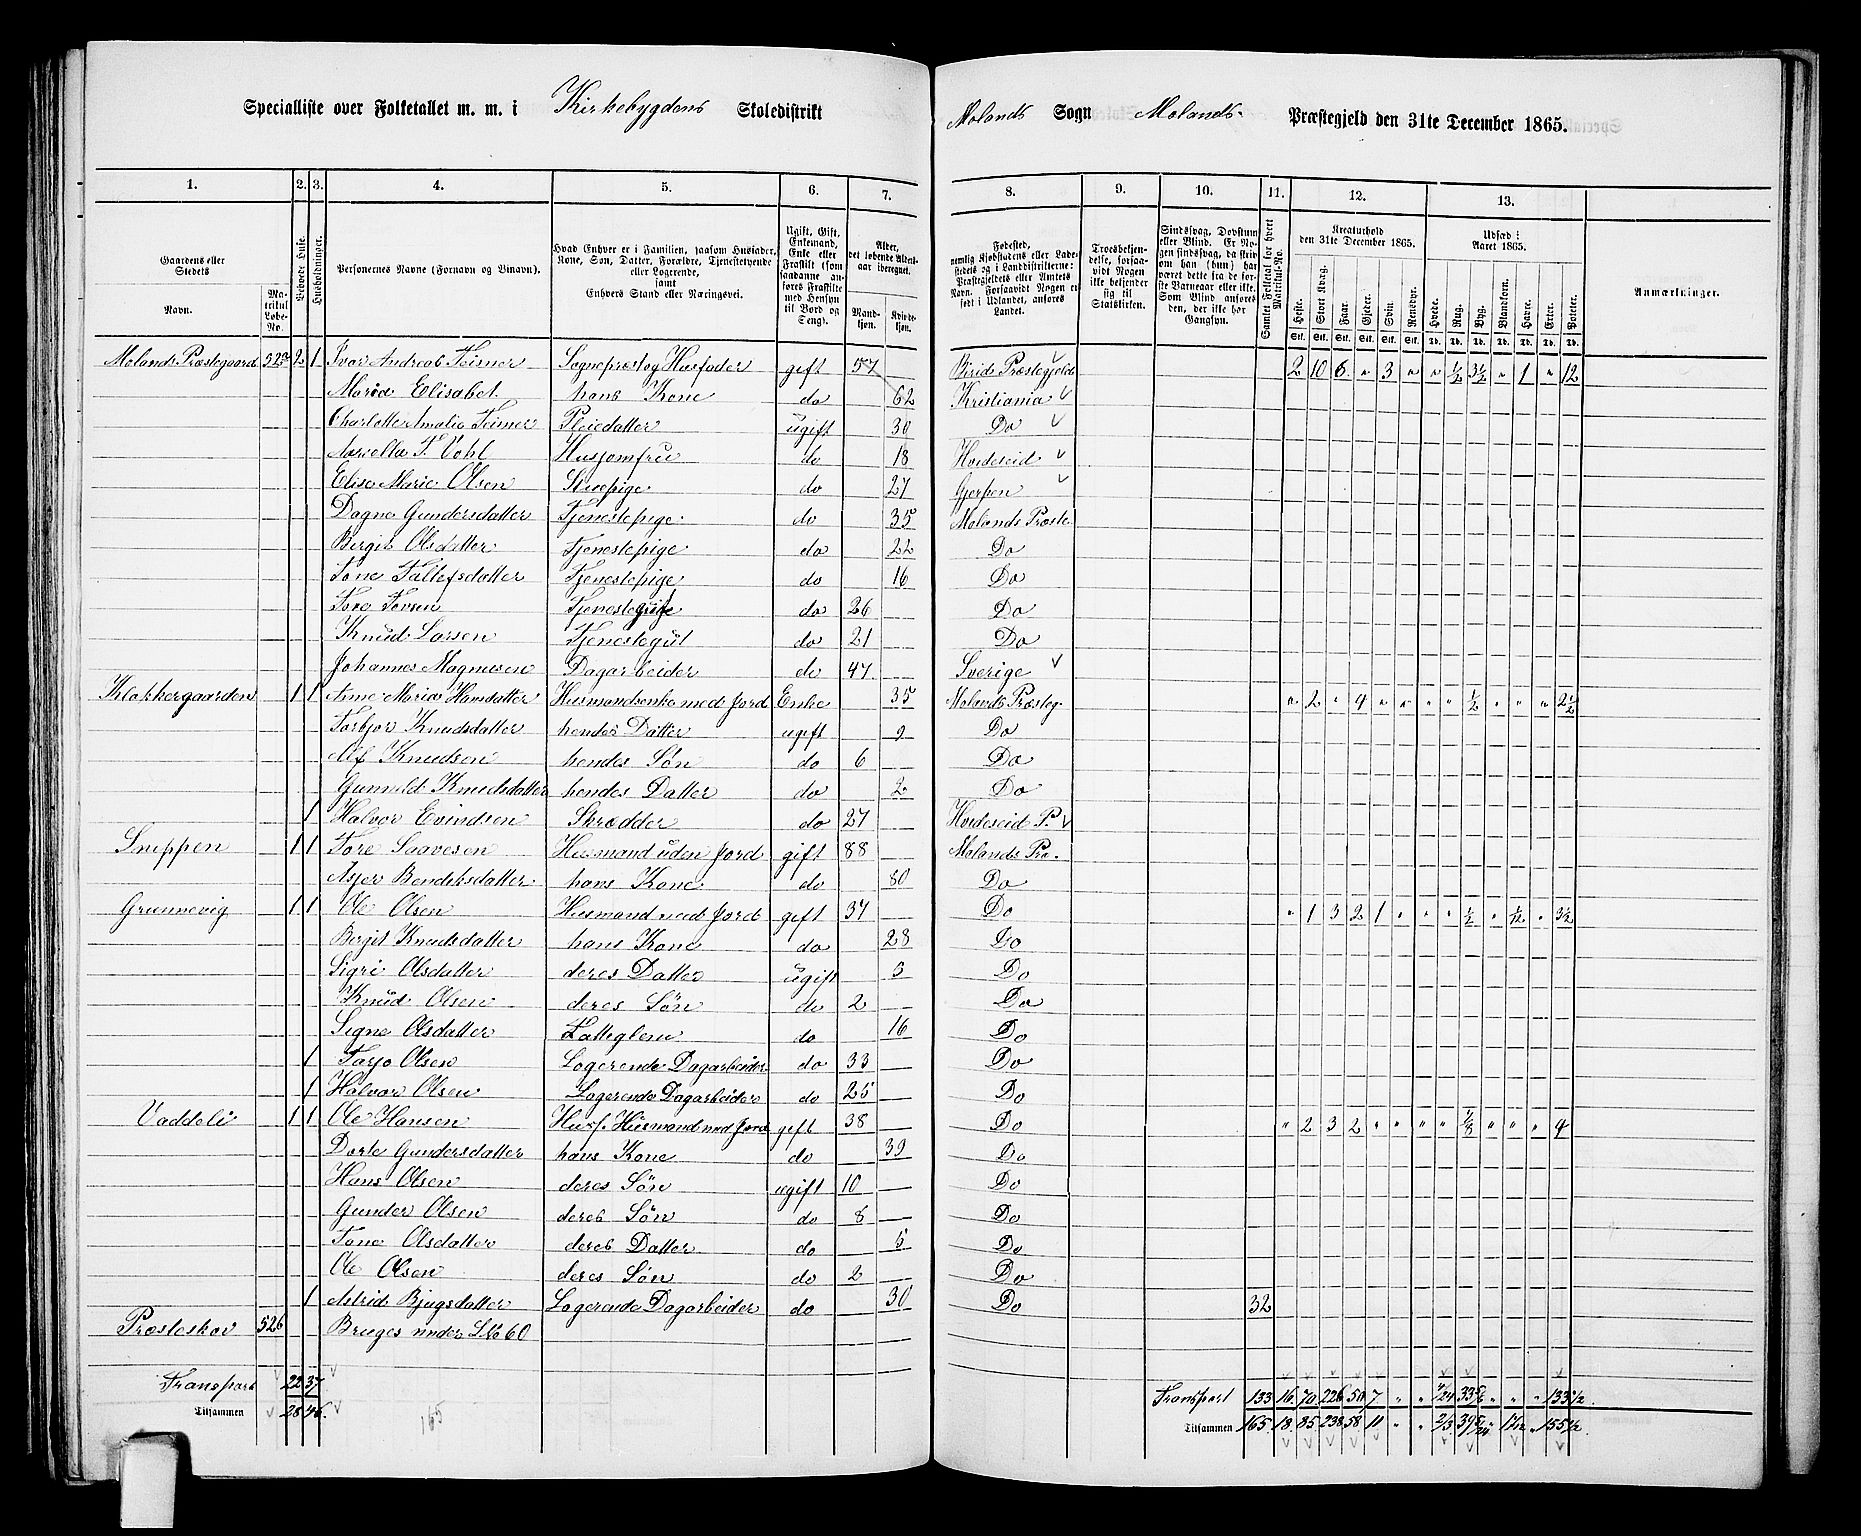 Specialliste over Folketallet m. m. i Kirkebygdens Skoledistrikt Molands Sogn Molands Præstegjeld den 31te December 1865.
1. 2. 3. 4. 5. 6. 7. 8. 9. 10. 11. 12. 13.
Gaardens eller Stedets Navn. Matrikul Løbe-No.
Beboede Huse.
Husholdninger.
Personernes Navne (Fornavn og Tilnavn).
Hvad Enhver er i Familien, saasom Husfader, Kone, Søn, Datter, Forældre, Tjenestetyende eller Logerende, samt Enhvers Stand eller Næringsvei.
Ugift, Gift, Enkemand, Enke eller Fraskilt (som saadanne anføres Fraskilte med Hensyn til Bord og Seng).
Alder, det løbende Aldersaar iberegnet. Mandkjøn. Kvindekjøn.
Fødested, nemlig Kjøbstadens eller Ladestedets og i Landdistrikterne: Præstegjeldets eller Amtets Navn. Forsaavidt Nogen er født i Udlandet, anføres Landet.
Troesbekjendelse, forsaavidt Nogen ikke bekjender sig til Statskirken.
Sindssvag, Døvstum eller Blind. Er Nogen sindssvag, da skrives om han (hun) har været dette fra de første Barneaar eller ikke. Som Blind anføres den, der ikke har Gangsyn.
Samlet Folketal for hvert Matrikul-No.
Kreaturhold den 31te December 1865. Heste. Stort Kvæg. Faar. Gjeder. Svin. Rensdyr.
Udsæd i Aaret 1865. Hvede. Rug. Byg. Blandkorn. Havre. Erter. Poteter.
Anmærkninger.
Molands Præstegaard 525 2 1 Ivar Andreas Teisner Sognepræst og Husfader gift 57 Birids Præstegjeld 2 10 6 " 3 " " ½ 3½ " 1 " 12
Maria Elisabet hans Kone do 62 Kristiania
Charlotte Amalia Teisner Pleiedatter ugift 30 Do
F. Vohl Husjomfru do 18 Hvideseid
Elise Marie Olsen Stuepige do 27 Gjerpen
Dagne Gundersdatter Tjenestepige do 35 Molands Præste
Bergit Olsdatter Tjenestepige do 22 Do
Tone Tallefsdatter Tjenestepige do 16 Do
Tore Tovsen Tjenestegut do 26 Do
Knud Larsen Tjenestegut do 21 Do
Johannes Magnusen Dagarbeider do 47 Sverige
Klokkergaarden 1 1 Anne Maria Hansdatter Husmandsenke med Jord Enke 35 Molands Præsteg. " 2 " 4 " " " " ½ " " " 2½
Torbjor Knudsdatter hendes Datter ugift 9 Do
Alf Knudsen hendes Søn do 6 Do
Gunnild Knudsdatter hendes Datter do 2 Do
1 Halvor Evindsen Skrædder do 27 Hvideseid P.
Snippen 1 1 Tore Saavesen Husmand uden Jord gift 88 Molands Præ.
Asjer Bendiksdatter hans Kone do 80 Do
Grunnevig 1 1 Ole Olsen Husmand med Jord gift 37 Do " 1 3 2 1 " " " ½ " 1/12 " 3½
Bergit Knudsdatter hans Kone do 28 Do
Sigri Olsdatter deres Datter ugift 5 Do
Knud Olsen deres Søn do 2 Do
Signe Olsdatter do 16 Do
1 Tarjo Olsen Logerende Dagarbeider do 33 Do
1 Halvor Olsen Logerende Dagarbeider do 25 Do
Vaddeli 1 1 Ole Hansen Husf. Husmand med Jord gift 38 Do " 2 3 2 " " " " 1/8 " " " 4
Dorte Gundersdatter hans Kone do 39 Do
Hans Olsen deres Søn ugift 10 Do
Gunder Olsen deres Søn do 8 Do
Tone Olsdatter deres Datter do 5 Do
Ole Olsen deres Søn do 2 Do
1 Astrid Bjugsdatter Logerende Dagarbeider do 30 Do 32
Præsteskov 526 Bruges under L.No 60
Transport 22 37 Transport 133 16 70 226 50 7 " " 133½
Tilsammen 28 46. 165 Tilsammen 165 18 85 238 58 11 " " 2/3 155½